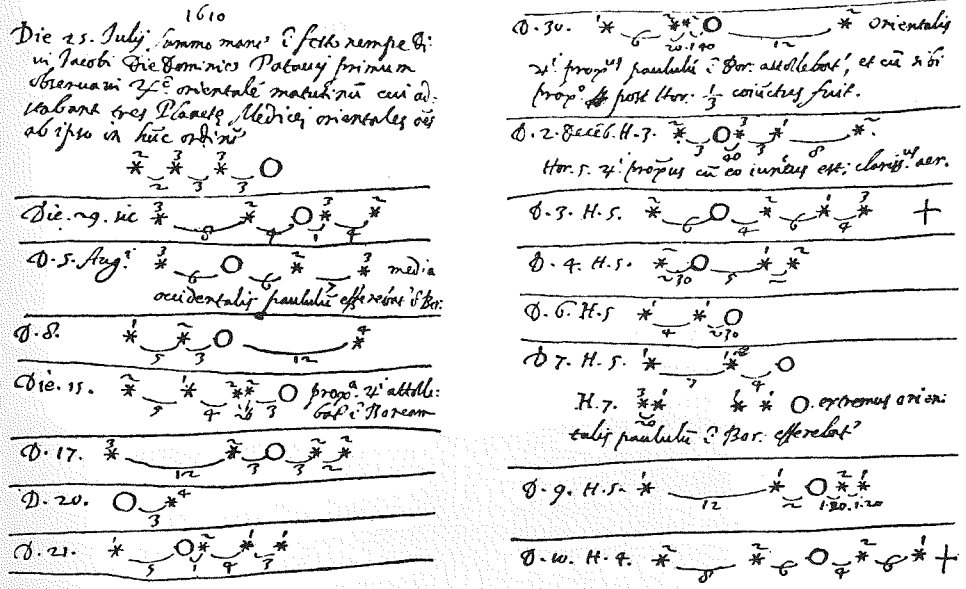 1610
Die 25. Julij summo mane î festo nempe Di-
vi Jacobi Die Dominico Patavij primum
observavi ♃ orientalē matutinū cui ad-
stabant tres Planetę Medicei orientales oēs
ab ipso in hūc ordinē
2 3 3
2 3 3
Die. 29. sic 3 2 3 2
8 4 1 4
D. 5. Aug. 3 2 3 media
6 6 7
occidentalis paululū efferebat' î Bor.
D. 8. 1 2 4
5 3 12
Die. 15. 2 1 2 2 prop. ♃ attolle-
5 4 3 bat' î Boream
D. 17. 3 2 2 2
12 3 3 2
D. 20. 4
3
D. 21. 1 2 1 1
5 1 4 3
D. 30. 1 2 2 Orientalis
6 20. 1 40 12
♃ prop. paululū î Bor. attollebat', et cū sibi
prop. post Hor. 1/3 coiūctus fuit.
D. 2. Decēb. H. 3. 2 3 1 2
3 40 3 8
Hor. 5. ♃ propius cū eo iunctus est; clariss. aer.
D. 3. H. 5. 2 2 1 3
6 4 6 4
D. 4. H. 5. 2 1 2
2 30 5 2
D. 6. H. 5 1 1
4 2 30
D 7. H. 5. 1 1
7 4
H. 7. 3 1 1 1 extremus orien-
20
talis paululū î Bor. efferebat'
D. 9. H. 5. 1 1 2 1
12 2 1.20. 1.20
D. 10. H. 4. 2 2 2 1
8 6 4 6